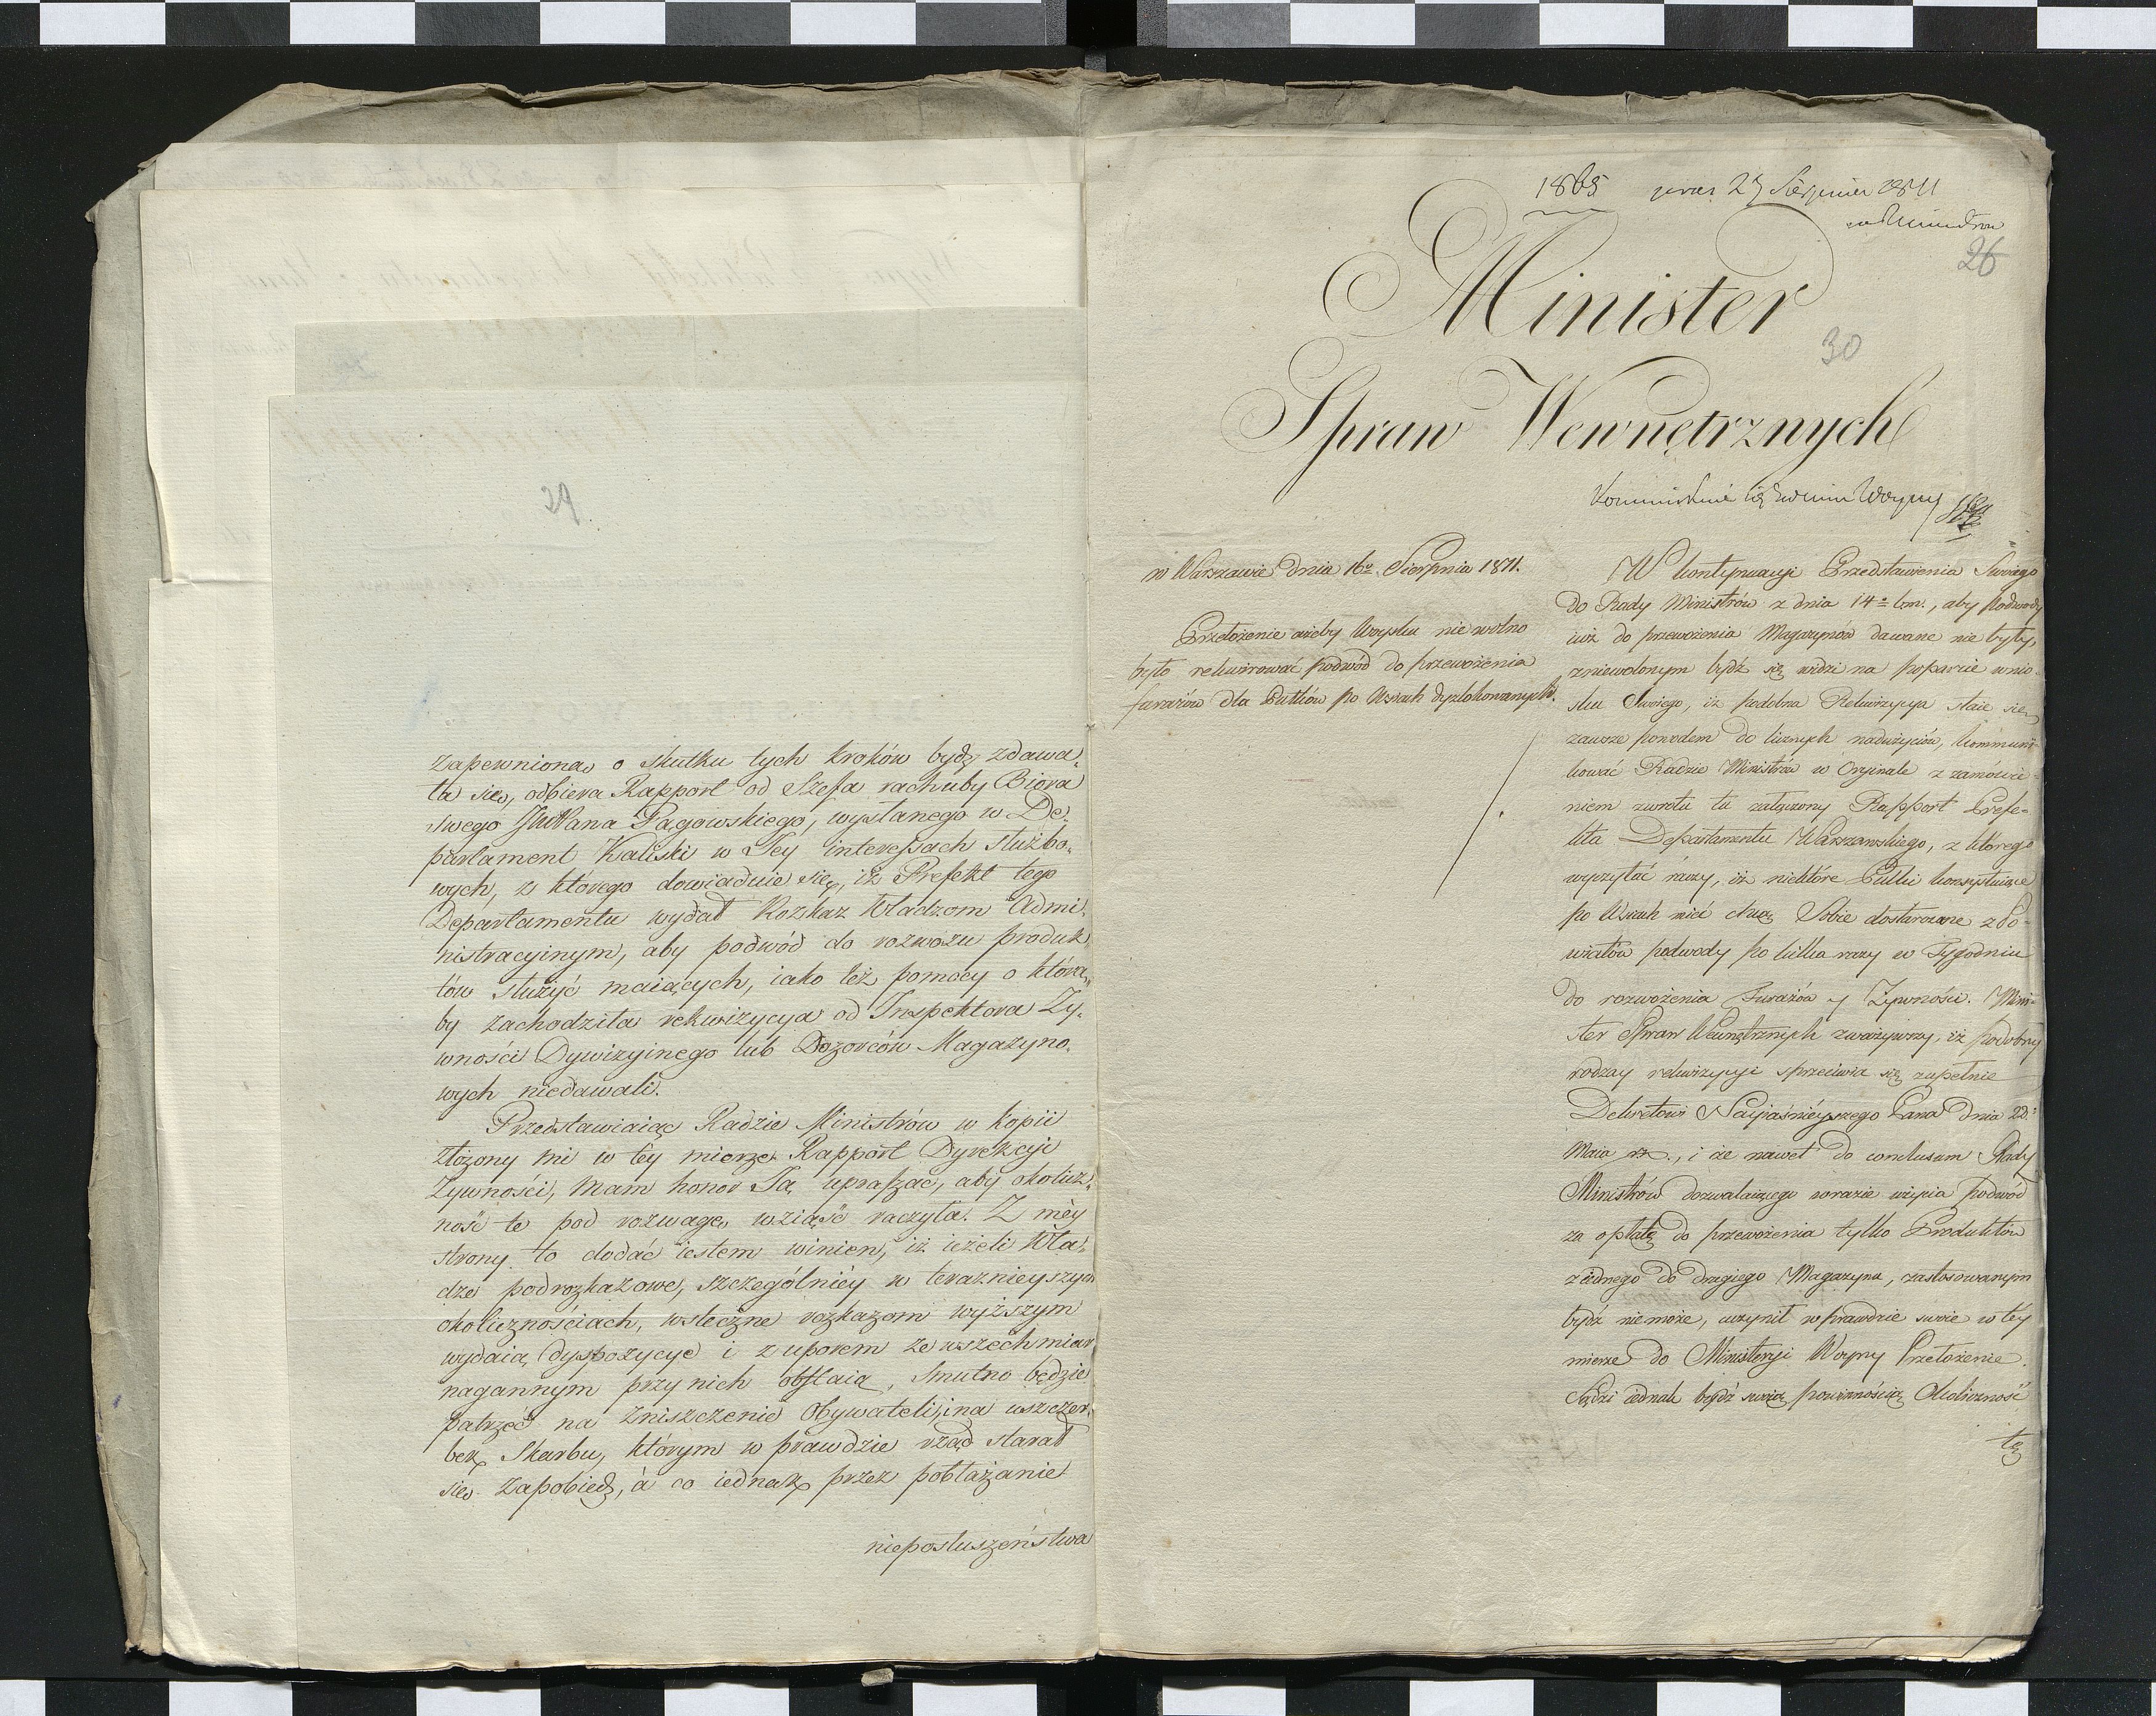 29
zapewniona o skutku tych kroków bydź zdawa,
ła się, odbiera Rapport od Szefa rachuby Bióra
swego Pągowskiego, wysłanego w De,
partament Kaliski w Jey interessach służbo,
wych, z którego dowiaduie się, iż Prefekt tego
Departamentu wydał Rozkaz Władzom Admi,
nistracyinym, aby podwód do rozwozu produk,
tów służyć maiących, iako też pomocy o którą,,
by zachodziła rekwizycya od Inspektora Ży,
wności Dywizyinego lub Dozorców Magazyno,
wych niedawali.
Przedstawiaiąc Radzie Ministrów w kopii
złożony mi w tey mierze Rapport Dyrekcyi
Żywności, mam honor Ją upraszać, aby okolicz,
ność tę pod rozwagę wziąść raczyła. Z méy
strony to dodać iestem winien, iż ieżeli Wła,
dze podrozkazowe, szczególniéy w teraznieyszych
okolicznościach, wsteczne rozkazom wyższym
wydaią dyspozycye i z uporem ze wszech miar
nagannym przy nich obstaią, smutno będzie
patrzeć na zniszczenie Obywateli, i na uszczer,
bek Skarbu, którym w prawdzie rząd starał
się zapobiedz, á co iednak przez pobłażanie
nieposłuszeństwa
1865 27 Sierpnia 1811
26
Minister
30
Spraw Wewnętrznych
Woyny
w Warszawie dnia 16º Sierpnia 1811.
Przełożenie ażeby Woysku nie wolno
było rekwirować podwód do przewożenia
furażów dla Pułków po Wsiach dyzlokowanych.
W kontynuacyi Przedstawienia Swoiego
do Rady Ministrów z dnia 14º b.m., aby podwody
iuż do przewożenia Magazynów dawane nie były,
zniewolonym bydź się widzi na poparcie wnio-
sku Swoiego, iż podobna Rekwizycya staie się
zawsze powodem do licznych nadużyciów, kommuni-
kować Radzie Ministrów w Oryginale z zamówie-
niem zwrotu tu załączony Rapport Prefe-
kta Departamentu Warszawskiego, z którego
wyczytać raczy, iż niektóre Pułki konsystuiące
po Wsiach mieć chcą Sobie dostarczane z Po-
wiatów podwody po kilka razy w Tygodniu
do rozwożenia Furażów y Żywności. Mini-
ster Spraw Wewnętrznych zważywszy, iż podobny
rodzay rekwizycyi sprzeciwia się zupełnie
Dekretowi Nayiaśnieyszego Pana dnia 22.
Maia rb., i że nawet do conclusum Rady
Ministrów dozwalaiącego w razie użycia podwód
za opłatą do przewożenia tylko Produktów
z iednego do drugiego Magazynu, zastosowanym
bydź nie może, uczynił w prawdzie swoie w téy
mierze do Ministeryi Woyny Przełożenie.
Sądzi iednak bydź swoią powinnością Okoliczność
tę